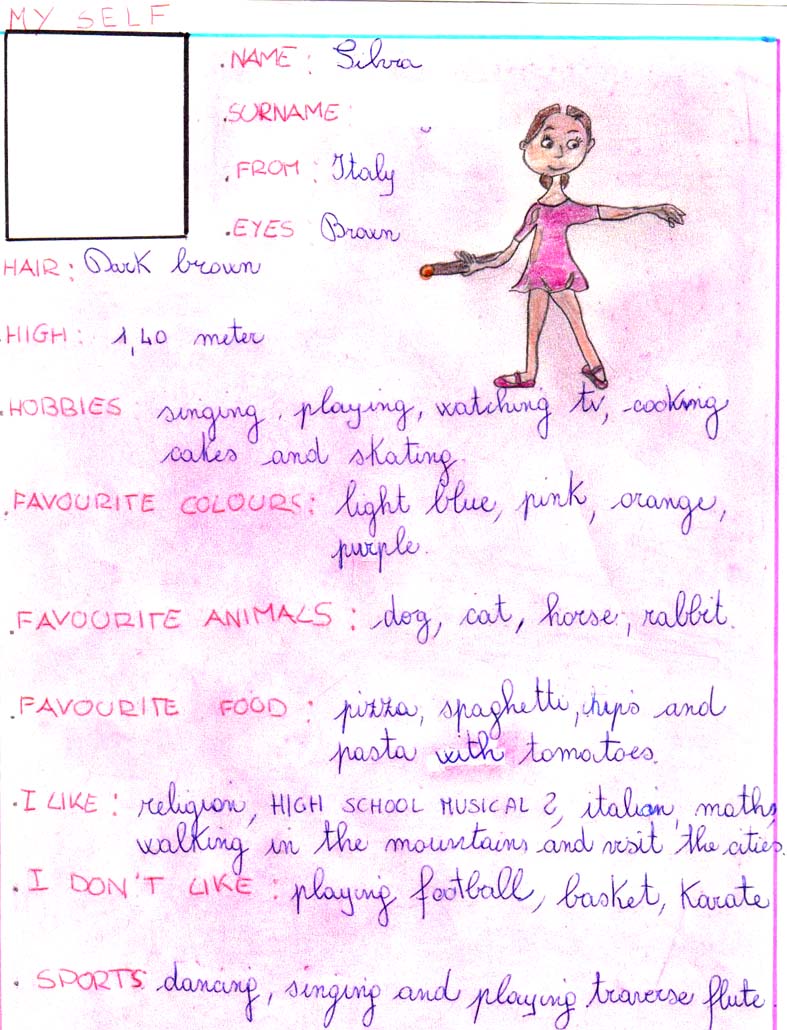 MY SELF
.NAME: Silvia
.SURNAME:
.FROM: Italy
.EYES Brown
HAIR: Dark brown
HIGH: 1,40 meter
.HOBBIES: singing, playing, watching tv, cooking
cakes and skating.
.FAVOURITE COLOURS: light blue, pink, orange,
purple.
.FAVOURITE ANIMALS: dog, cat, horse, rabbit.
.FAVOURITE FOOD: pizza, spaghetti, chips and
pasta with tomatoes.
.I LIKE: religion, HIGH SCHOOL MUSICAL 2, italian, maths,
walking in the mountains and visit the cities.
.I DON'T LIKE: playing football, basket, Karate
.SPORTS dancing, singing and playing traverse flute.